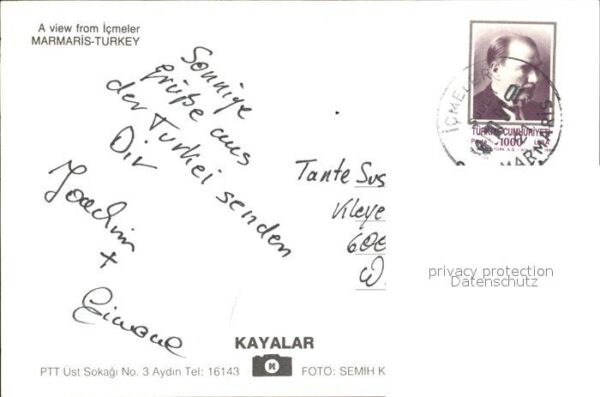 A view from İçmeler
MARMARİS-TURKEY
Sonnige
Grüße aus
der Türkei senden
Dir
Joachim
+
Simone
İÇMELER
MARMARİS
TÜRKİYE CUMHURİYETİ
1000
LİRA
Tante Sus
60
W
privacy protection
Datenschutz
KAYALAR
PTT Üst Sokağı No. 3 Aydın Tel: 16143
FOTO: SEMİH K